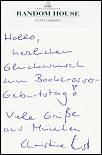 RANDOM HOUSE
Hallo,
herzlichen
Glückwunsch
zum Bookcrosser-
Geburtstag!
Viele Grüße
aus München
Christine